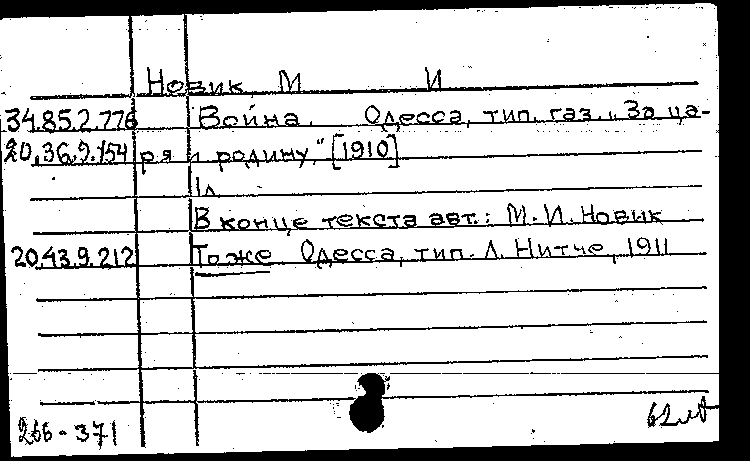 Новик, М И
34.85.2.776 Война. Одесса, тип. газ. „За ца-
20.36.9.154 ря и родину," [1910]
1л
В конце текста авт.: М.И. Новик
20.43.9.212 То же Одесса, тип. Л. Нитче, 1911
266-371